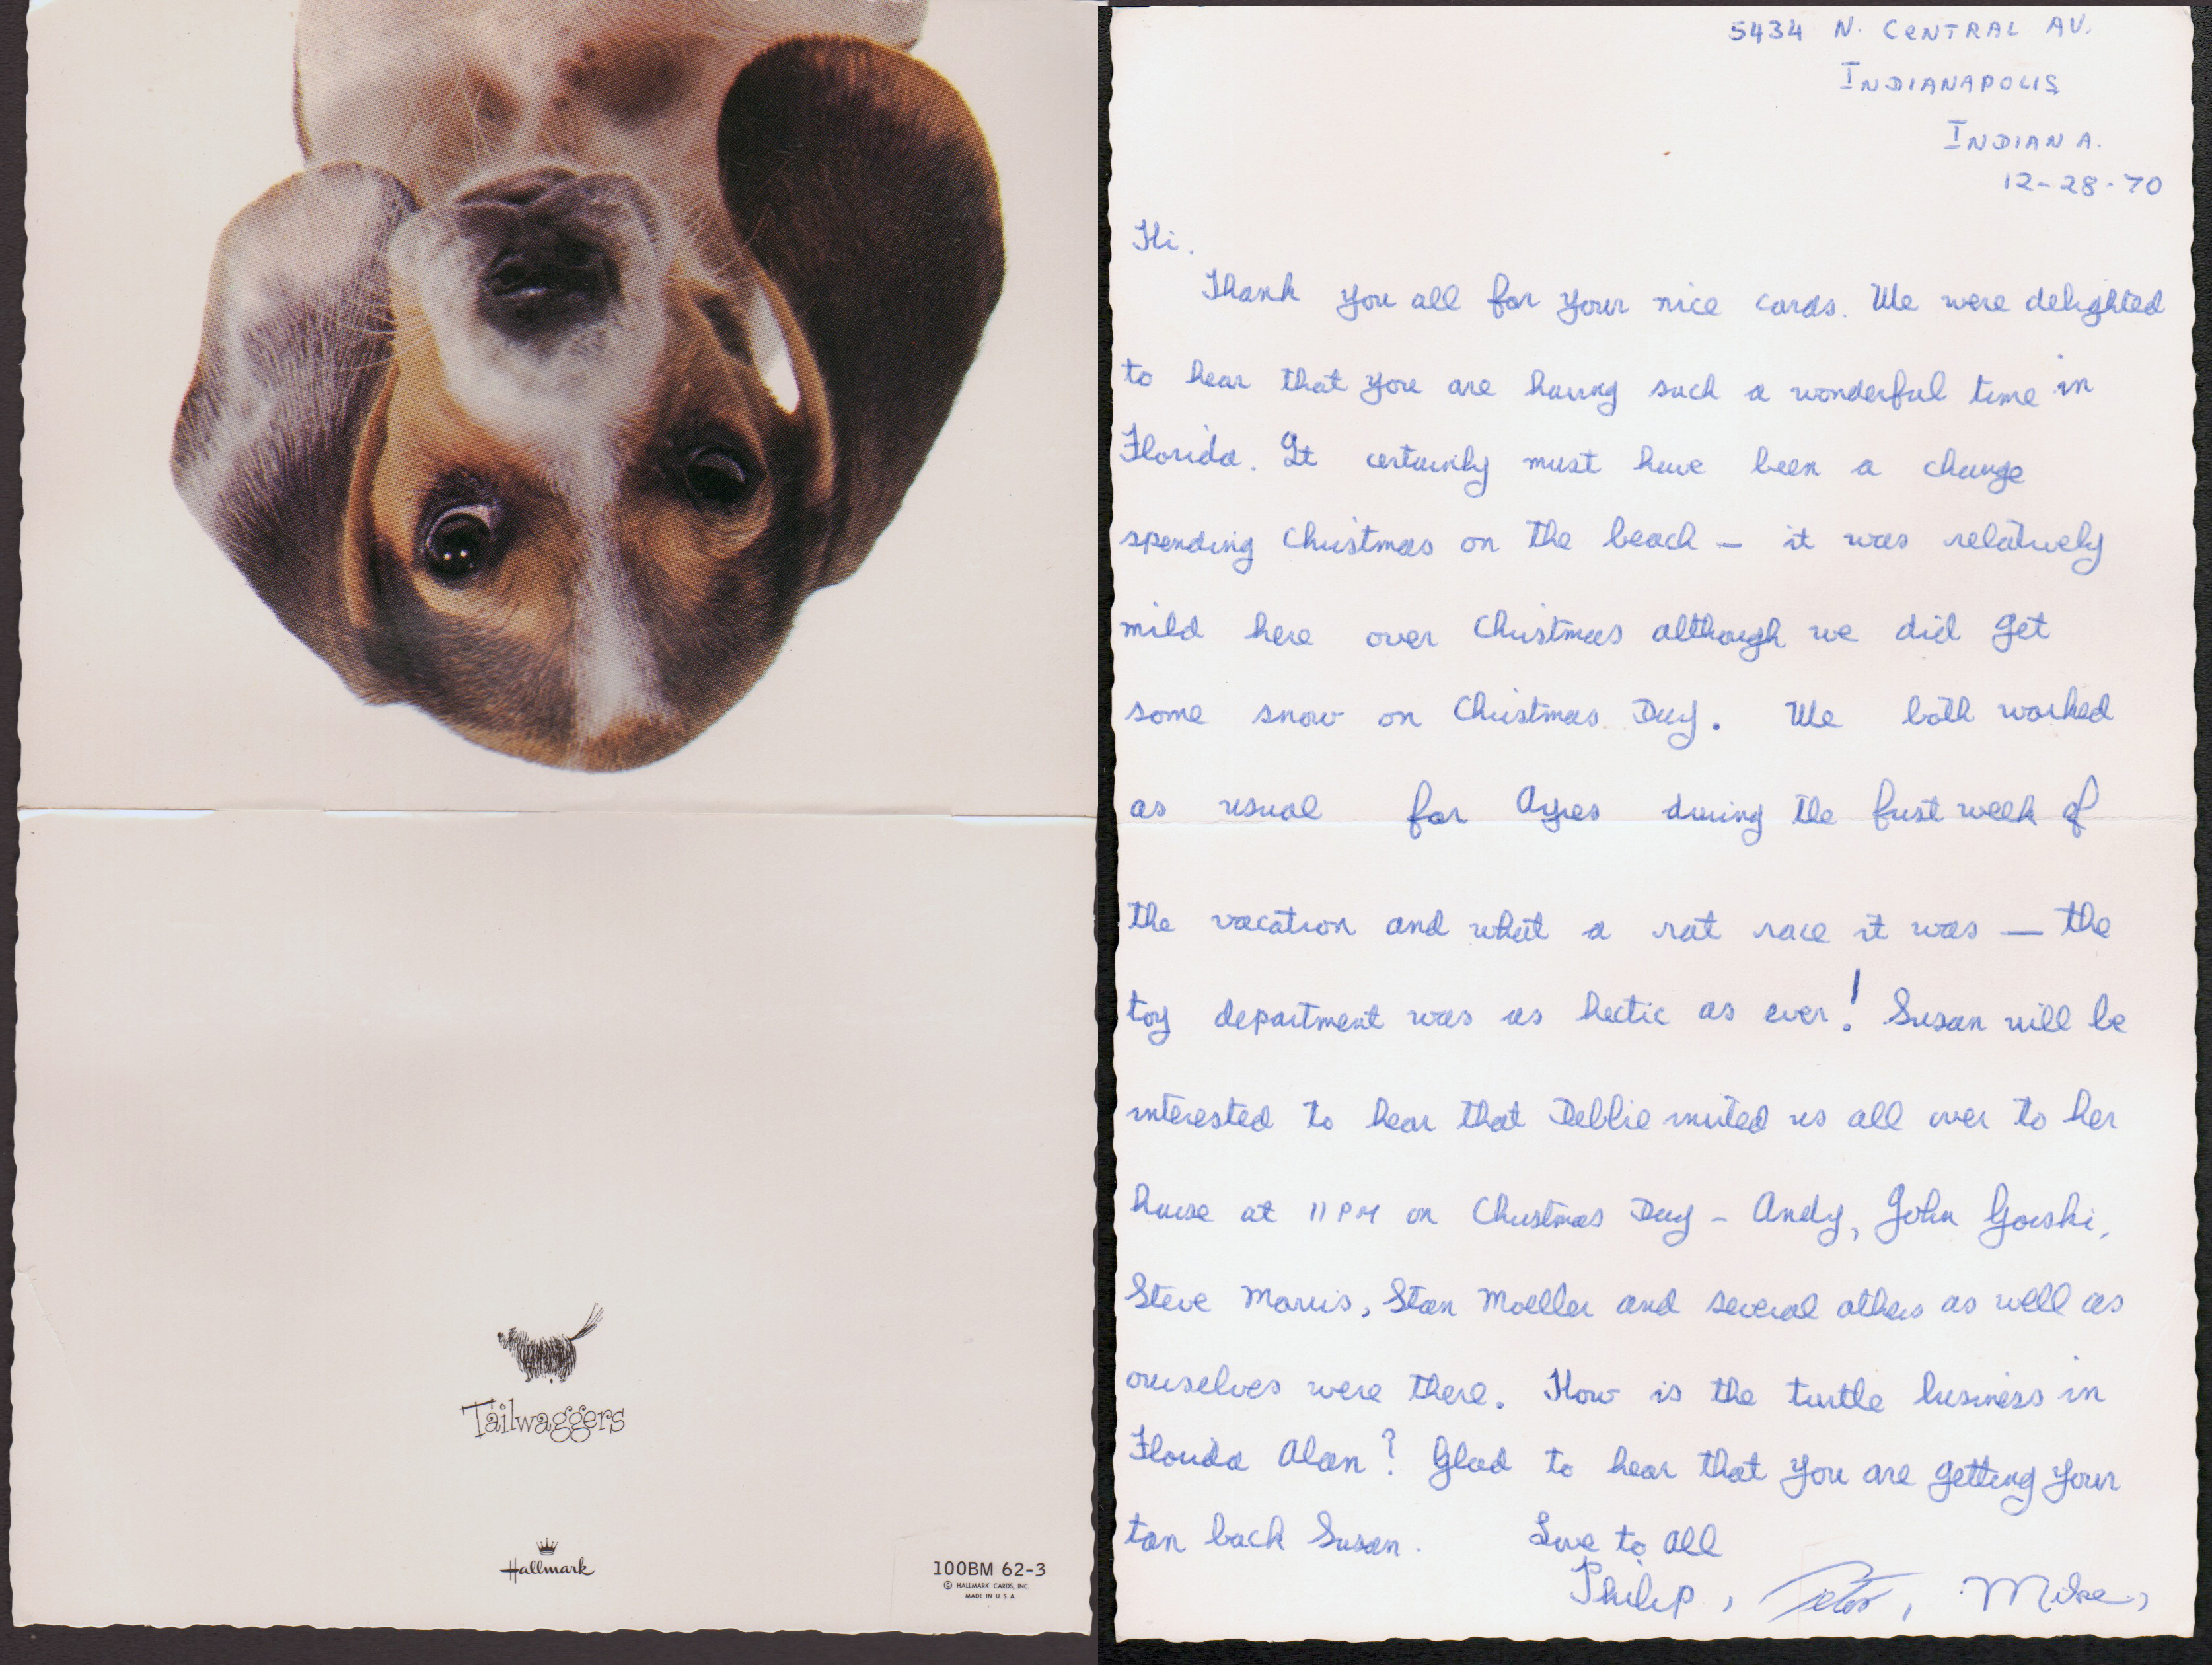 Tailwaggers
Hallmark
100BM 62-3
© HALLMARK CARDS, INC.
MADE IN U.S.A.
5434 N. CENTRAL AV.
INDIANAPOLIS
INDIANA.
12-28-70
Hi.
Thank you all for your nice cards. We were delighted
to hear that you are having such a wonderful time in
Florida. It certainly must have been a change
spending Christmas on the beach — it was relatively
mild here over Christmas although we did get
some snow on Christmas Day. We both worked
as usual for Ayres during the first week of
the vacation and what a rat race it was — the
toy department was as hectic as ever! Susan will be
interested to hear that Debbie invited us all over to her
house at 11 PM on Christmas Day - Andy, John Gorski,
Steve Morris, Stan Moeller and several others as well as
ourselves were there. How is the turtle business in
Florida Alan? Glad to hear that you are getting your
tan back Susan. Love to all
Philip, Peter, Mike,